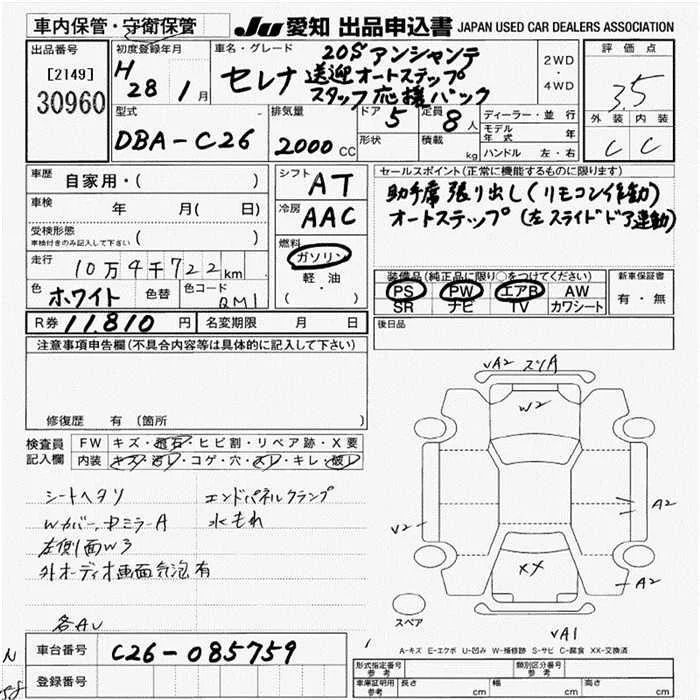 車内保管・守衛保管
JU 愛知 出品申込書 JAPAN USED CAR DEALERS ASSOCIATION
出品番号
[2149]
30960
初度登録年月
H 28 年 1 月
車名・グレード
セレナ
20S アンシャンテ
送迎オートステップ
スタッフ応様パック
2WD
・
4WD
評価点
3.5
外装 内装
C C
型式
DBA-C26
排気量
2000 CC
ドア 5
形状
定員 8 人
積載 kg
ディーラー・並行
モデル年式 年
ハンドル 左・右
車歴 自家用・( )
車検 年 月( 日)
受検形態
車検付きのみ記入して下さい ( )
走行 10万4千722km
色 ホワイト 色替 色コード QM1
シフト AT
冷房 AAC
燃料
ガソリン
・
軽・油
( )
セールスポイント(正常に機能するものに限ります)
助手席張り出し(リモコン作動)
オートステップ(左スライドドア連動)
装備品(純正品に限り○をつけてください)
PS PW エアB AW
SR ナビ TV カワシート
新車保証書
有・無
R券 11.810 円 名変期限 月 日
後日品
注意事項申告欄(不具合内容等は具体的に記入して下さい)
修復歴 有 (箇所 )
検査員記入欄
FW キズ・飛石・ヒビ割・リペア跡・X要
内装 キズ・汚レ・コゲ・穴・スレ・キレ・破レ
シートヘタリ エンドパネルクランプ
Wカバー、中ミラーA 水もれ
左側面W3
外オーディオ画面気泡有
各AU
VA2 スリA
W2
V2
A2
XX
A2
VA1
スペア
A-キズ E-エクボ U-凹み W-補修跡 S-サビ C-腐食 XX-交換済
車台番号 C26-085759
登録番号
形式指定番号 参考
類別区分番号 参考
車庫証明用 参考 長さ cm 幅 cm 高さ cm